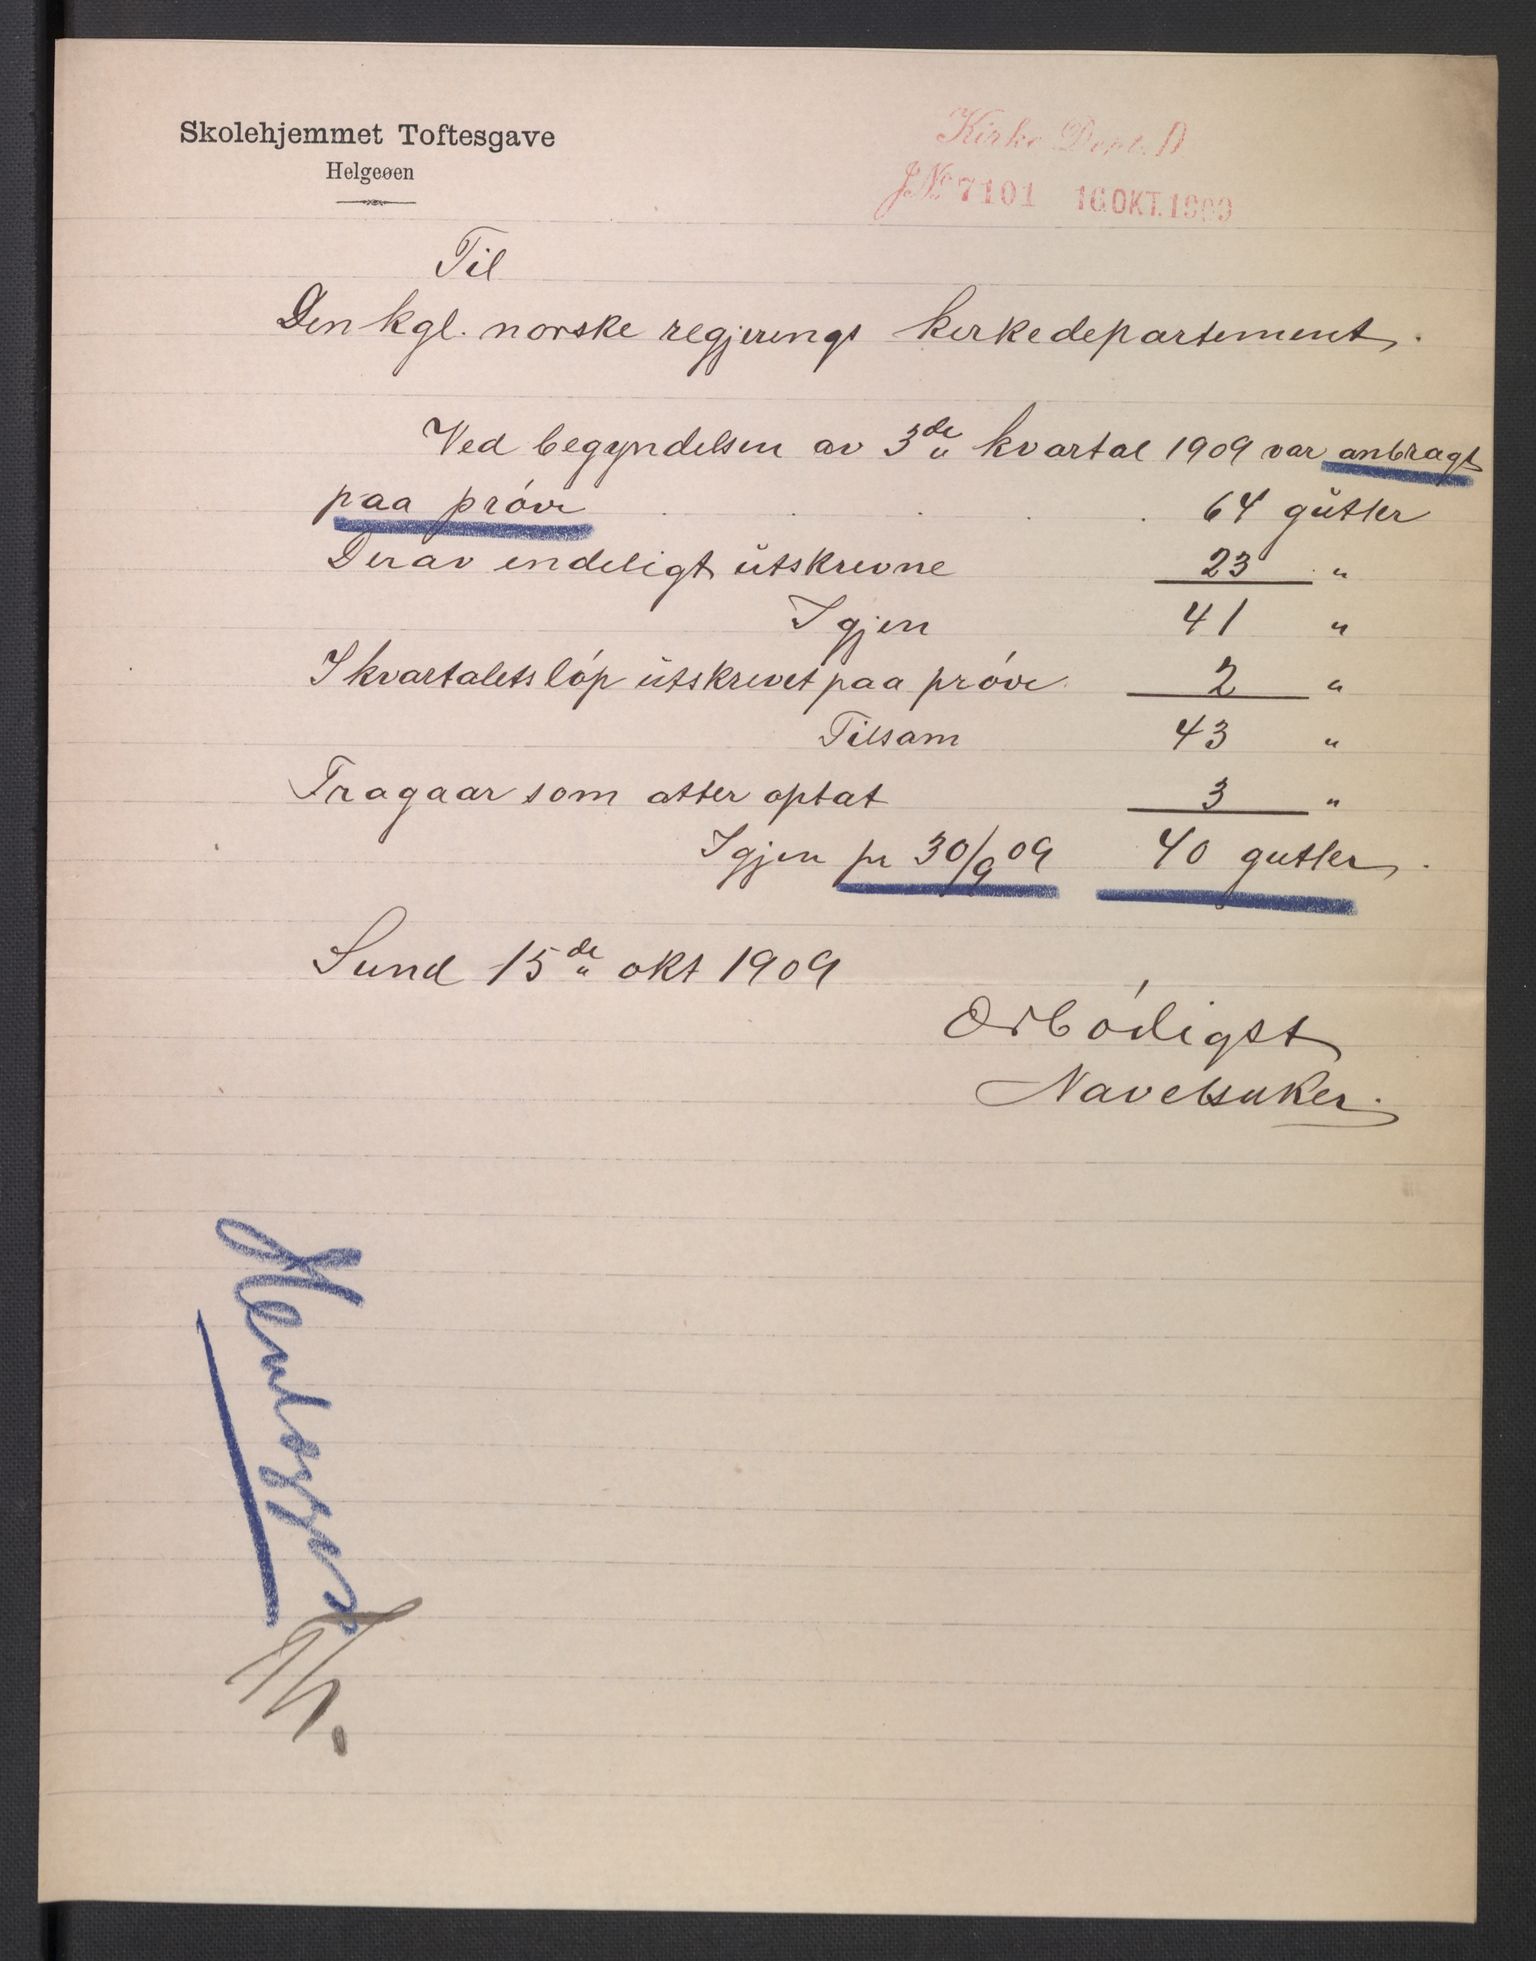 Skolehjemmet Toftesgave
Helgeøen
Kirke Dept. D
JNo 7101 16.OKT.1909
Til
Den kgl. norske regjerings kirkedepartement.
Ved begyndelsen av 3de kvartal 1909 var anbragt
paa prøve . . . . . 64 gutter
Derav endeligt utskrevne 23 "
Igjen 41 "
I kvartalets løp utskrevet paa prøve 2 "
Tilsam 43 "
Fragaar som atter optat 3 "
Igjen pr 30/9 09 40 gutter.
Sund 15de okt 1909
Ærbødigst
Navelsaker.
Henlægges
Th.